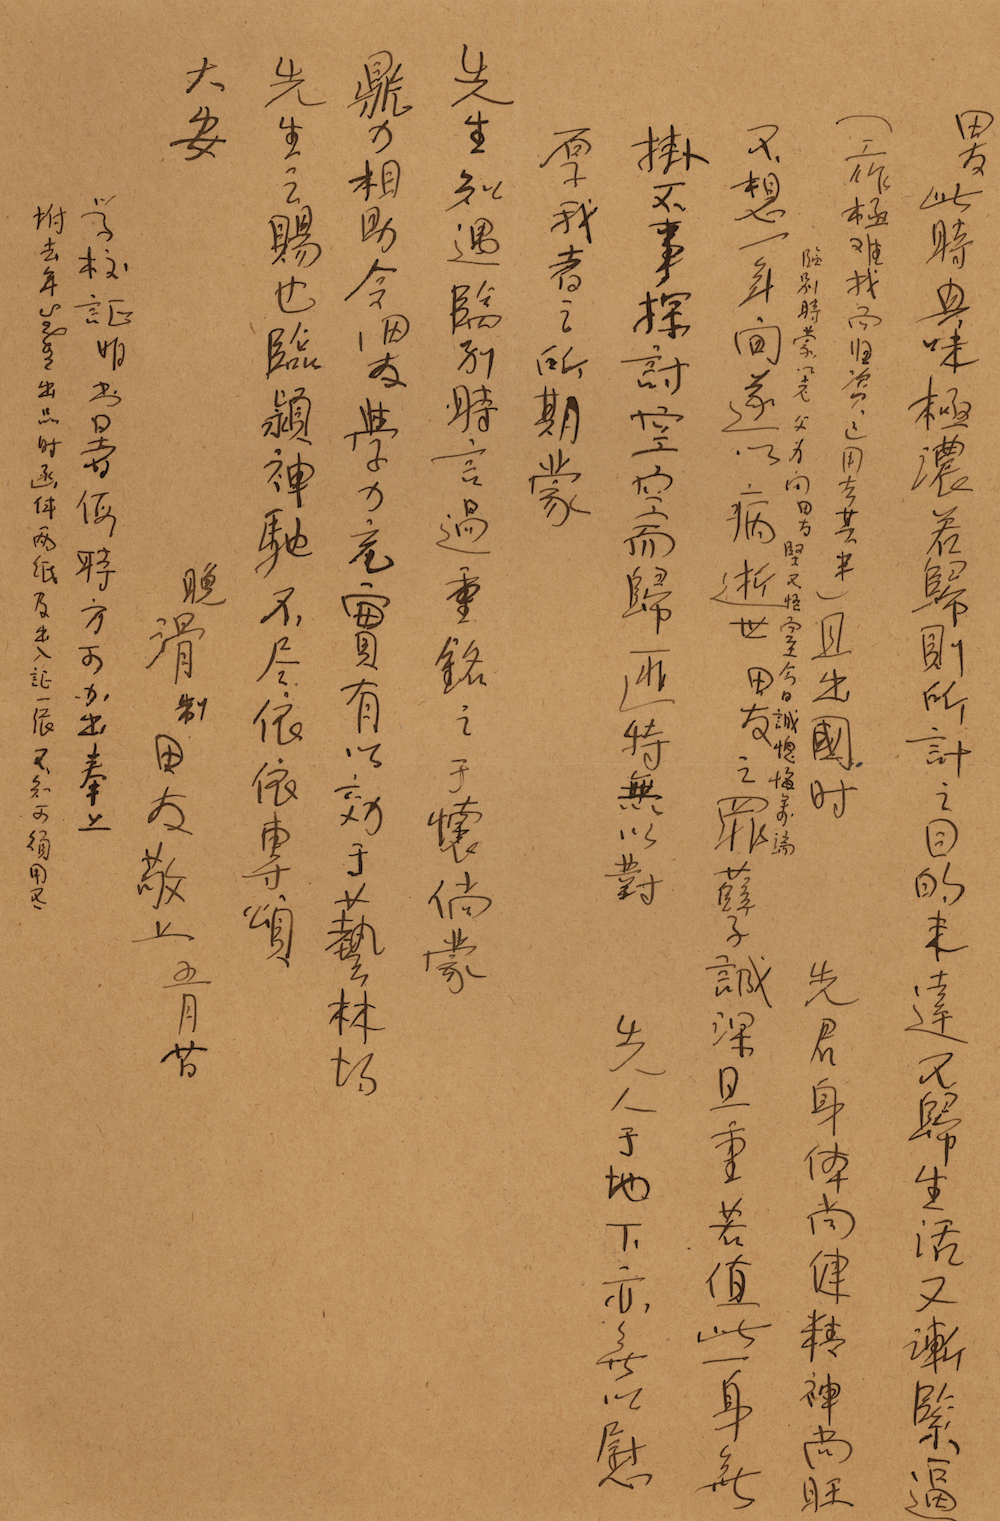 田友此時興味極濃若歸則所計之目的未達不歸生活又漸緊逼
(工作極难找而旧資已用去其半)且出國时 先君身体尚健精神尚旺
臨别時蒙 父 向田友堅 今日誠愧悔萬端
不想一年间遂以病逝世田友之罪孽誠深且重若值此一身無
掛不事探討空空而歸匪特無以對 先人于地下亦無以慰
厚我者之所期蒙
先生知遇臨别時言過重銘之于懷倘蒙
鼎力相助令田友學力充實有以効于藝林均
先生之賜也臨穎神馳不尽依依專頌
大安
晚滑制田友敬上五月廿
学校証明書另 俟時方可办出奉上
坿去年 出品时函件兩紙及出入証一張不知可須用否